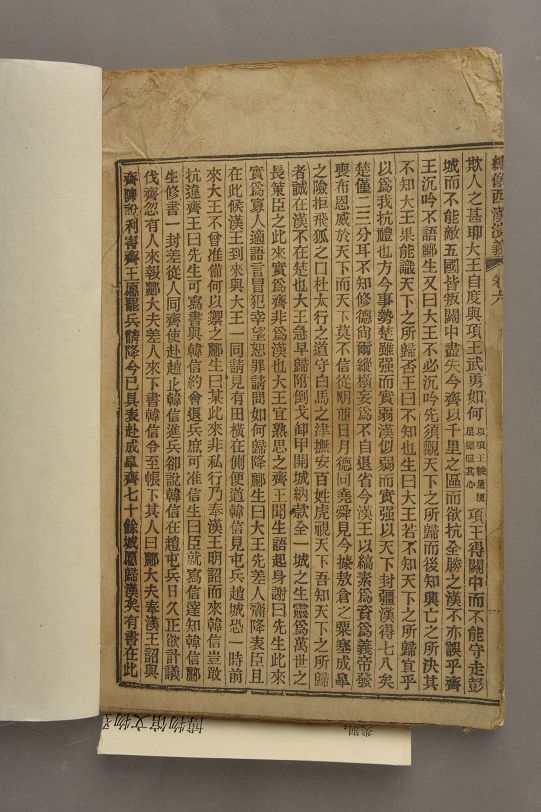 繡像西漢演義 卷六
欺人之甚耶大王自度與項王武勇如何以項王較量便是壓服其心項王得關中而不能守走彭
城而不能敵五國皆叛關中盡失今齊以千里之區而欲抗全勝之漢不亦誤乎齊
王沉吟不語酈生又曰大王不必沉吟先須觀天下之所歸而後知興亡之所決其
不知大王果能識天下之所歸否王曰不知也生曰大王若不知天下之所歸宜乎
以爲我抗體也方今事勢楚雖强而實弱漢似弱而實强以天下封疆漢得七八矣
楚僅二三分耳不知修德尙爾縱橫妄爲不自退省今漢王以縞素爲資爲義帝發
喪布恩威於天下而天下莫不信從明並日月德同堯舜見今據敖倉之粟塞成皐
之險拒飛狐之口杜太行之道守白馬之津撫安百姓虎視天下吾知天下之所歸
者誠在漢不在楚也大王急早歸附倒戈卸甲開城納款全一城之生靈爲萬世之
長策臣之此來實爲齊非爲漢也大王宜熟思之齊王聞生語起身謝曰先生此來
實爲寡人適語言冒犯幸望恕罪請問如何歸降酈生曰大王先差人齎降表臣且
在此候漢王到來與大王一同請見有田橫在側便道韓信見屯兵趙城恐一時前
來大王不曾准備何以禦之酈生曰某此來非私行乃奉漢王明詔而來韓信豈敢
抗違齊王曰先生可寫書與韓信約會退兵庶可准信生曰臣就寫信達知韓信酈
生修書一封差從人同齊使赴趙止韓信進兵卻說韓信在趙屯兵日久正欲計議
伐齊忽有人來報酈大夫差人來下書韓信令至帳下其人曰酈大夫奉漢王詔與
齊陳說利害齊王愿罷兵請降今已具表赴成皐齊七十餘城愿歸漢矣有書在此
博物馆文物
类别: